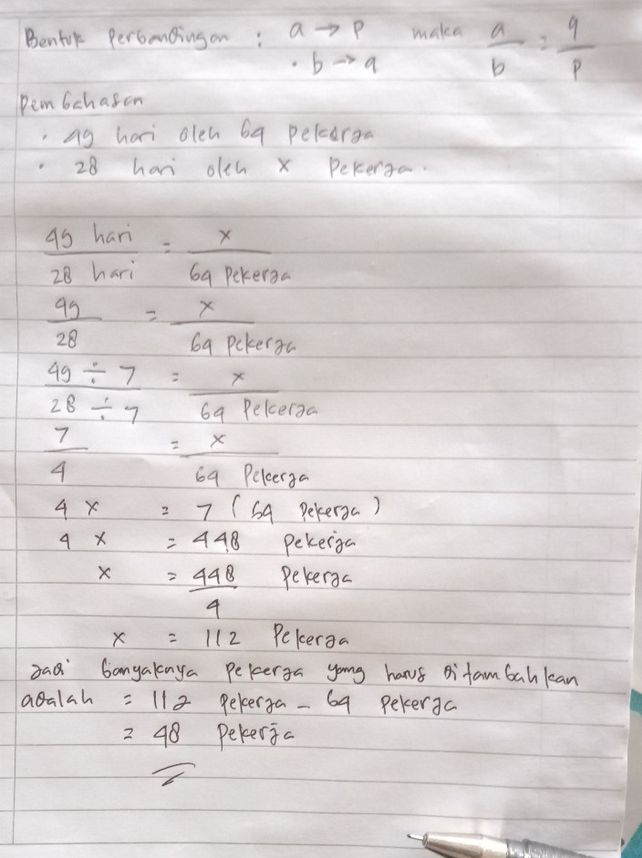 Bentuk Perbandingan : a → p maka a/b = q/p
• b → q
Pembahasan
• 49 hari oleh 64 pekerja
• 28 hari oleh x Pekerja.
49 hari / 28 hari = x / 64 Pekerja
49 / 28 = x / 64 Pekerja
49 ÷ 7 / 28 ÷ 7 = x / 64 Pekerja
7 / 4 = x / 64 Pekerja
4 x = 7 ( 64 Pekerja )
4 x = 448 Pekerja
x = 448 / 4 Pekerja
x = 112 Pekerja
Jadi banyaknya Pekerja yang harus ditambahkan
adalah = 112 Pekerja - 64 Pekerja
= 48 Pekerja